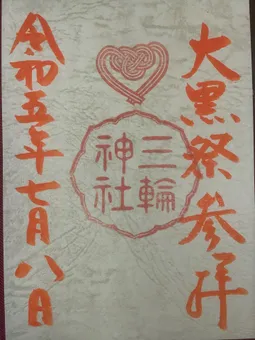 大黒祭参拝
三輪
神社
令和五年七月八日